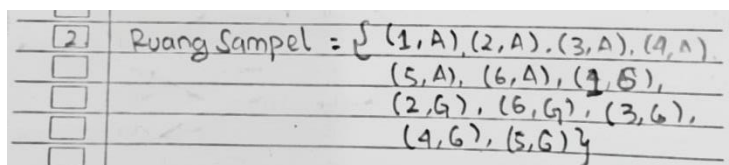 2. Ruang Sampel = { (1,A), (2,A), (3,A), (4,A).
(5,A), (6,A), (1,G),
(2,G), (6,G), (3,G),
(4,G), (5,G)}